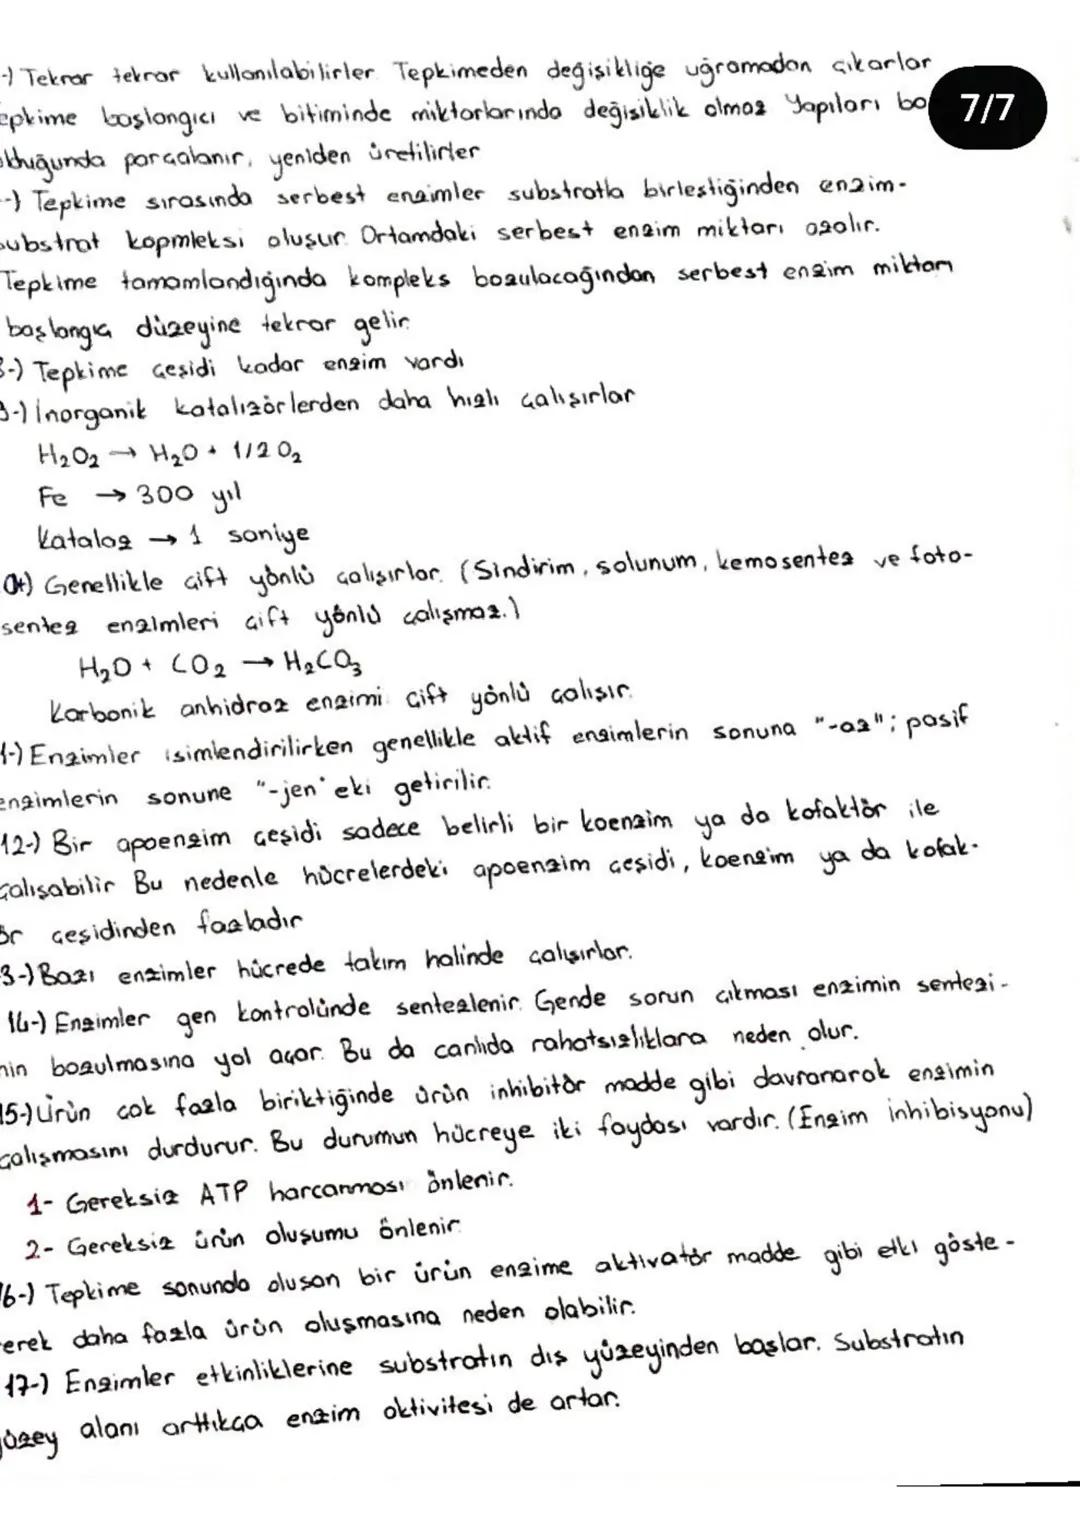 -) Tekrar tekrar kullanılabilirler. Tepkimeden değişikliğe uğramadan çıkarlar
epkime başlangıcı ve bitiminde miktarlarında değişiklik olmaz Yapıları bo
7/7
olduğunda parçalanır, yeniden üretilirler
-) Tepkime sırasında serbest enzimler substratla birleştiğinden enzim-
substrat kopmleksi oluşur. Ortamdaki serbest enzim miktarı azalır.
Tepkime tamamlandığında kompleks bozulacağından serbest enzim miktarı
başlangıç düzeyine tekrar gelir.
8-) Tepkime çeşidi kadar enzim vardı
9-) İnorganik katalizörlerden daha hızlı çalışırlar
H₂O₂ → H₂O + 1/2 O₂
Fe → 300 yıl
Katalaz → 1 saniye
0-) Genellikle çift yönlü çalışırlar. (Sindirim, solunum, kemosentez ve foto-
sentez enzimleri çift yönlü çalışmaz.)
H₂O + CO₂ → H₂CO₃
Karbonik anhidraz enzimi çift yönlü çalışır.
1-) Enzimler isimlendirilirken genellikle aktif enzimlerin sonuna "-az"; pasif
enzimlerin sonune "-jen" eki getirilir.
12-) Bir apoenzim çeşidi sadece belirli bir koenzim ya da kofaktör ile
çalışabilir Bu nedenle hücrelerdeki apoenzim çeşidi, koenzim ya da kofak-
ör çeşidinden fazladır
3-) Bazı enzimler hücrede takım halinde çalışırlar.
14-) Enzimler gen kontrolünde sentezlenir. Gende sorun çıkması enzimin sentezi-
nin bozulmasına yol açar. Bu da canlıda rahatsızlıklara neden olur.
15-) Ürün çok fazla biriktiğinde ürün inhibitör madde gibi davranarak enzimin
çalışmasını durdurur. Bu durumun hücreye iki faydası vardır. (Enzim inhibisyonu)
1- Gereksiz ATP harcanması önlenir.
2- Gereksiz ürün oluşumu önlenir.
16-) Tepkime sonunda oluşan bir ürün enzime aktivatör madde gibi etki göste-
erek daha fazla ürün oluşmasına neden olabilir.
17-) Enzimler etkinliklerine substratın dış yüzeyinden başlar. Substratın
yüzey alanı arttıkça enzim aktivitesi de artar.